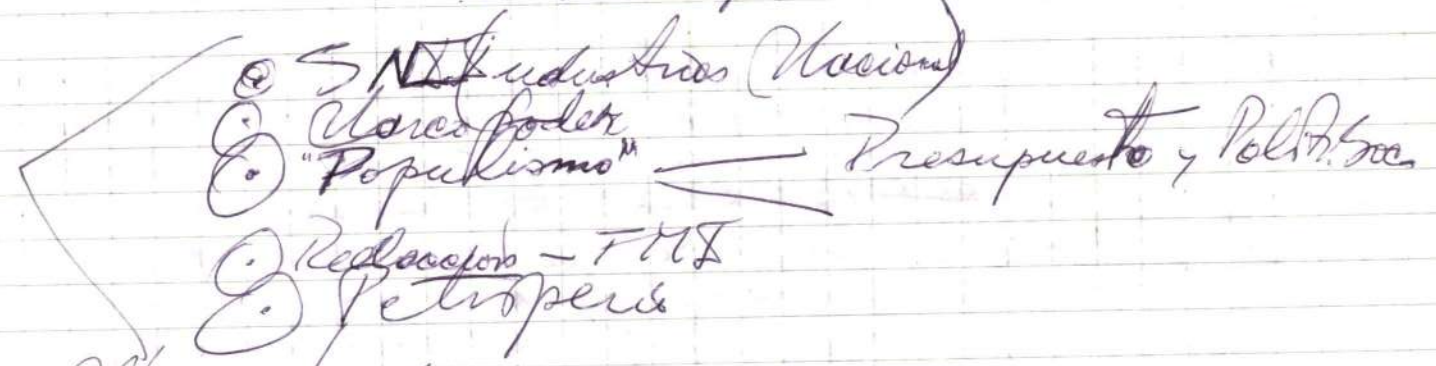 SNI (Industrias Nacional)
Marco Poder
"Populismo" — Presupuesto y Polít. Soc.
Redacción - FMI
Petroperú